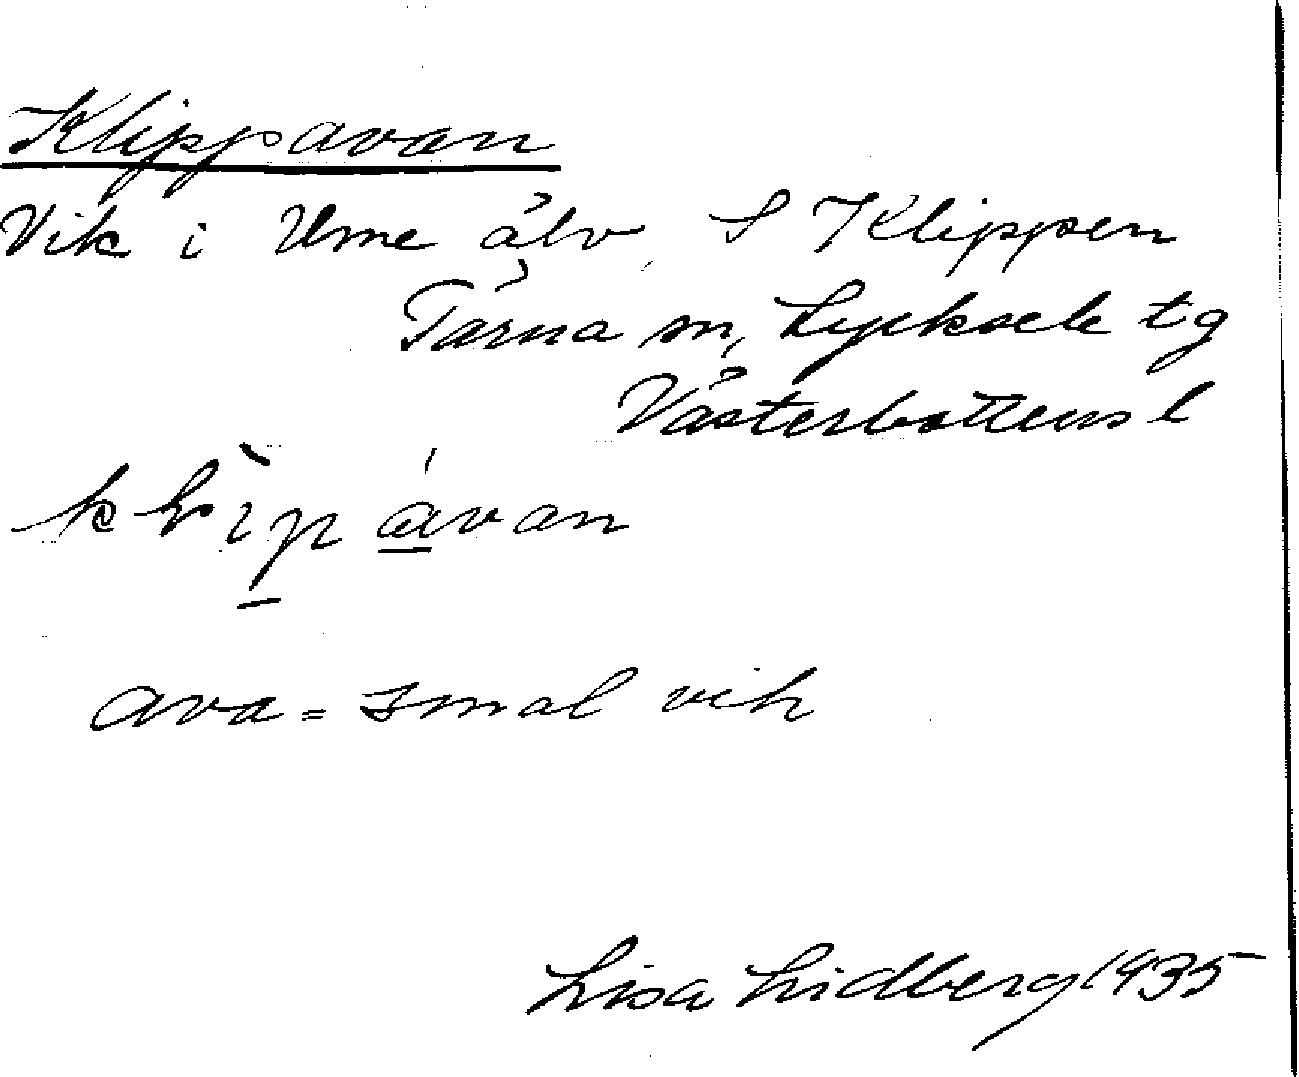 Klippavan
Vik i Ume älv, S Klippen
Tärna sn, Lycksele tg
Västerbottens l
klìpávan
ava = smal vik
Lisa Lidberg 1935